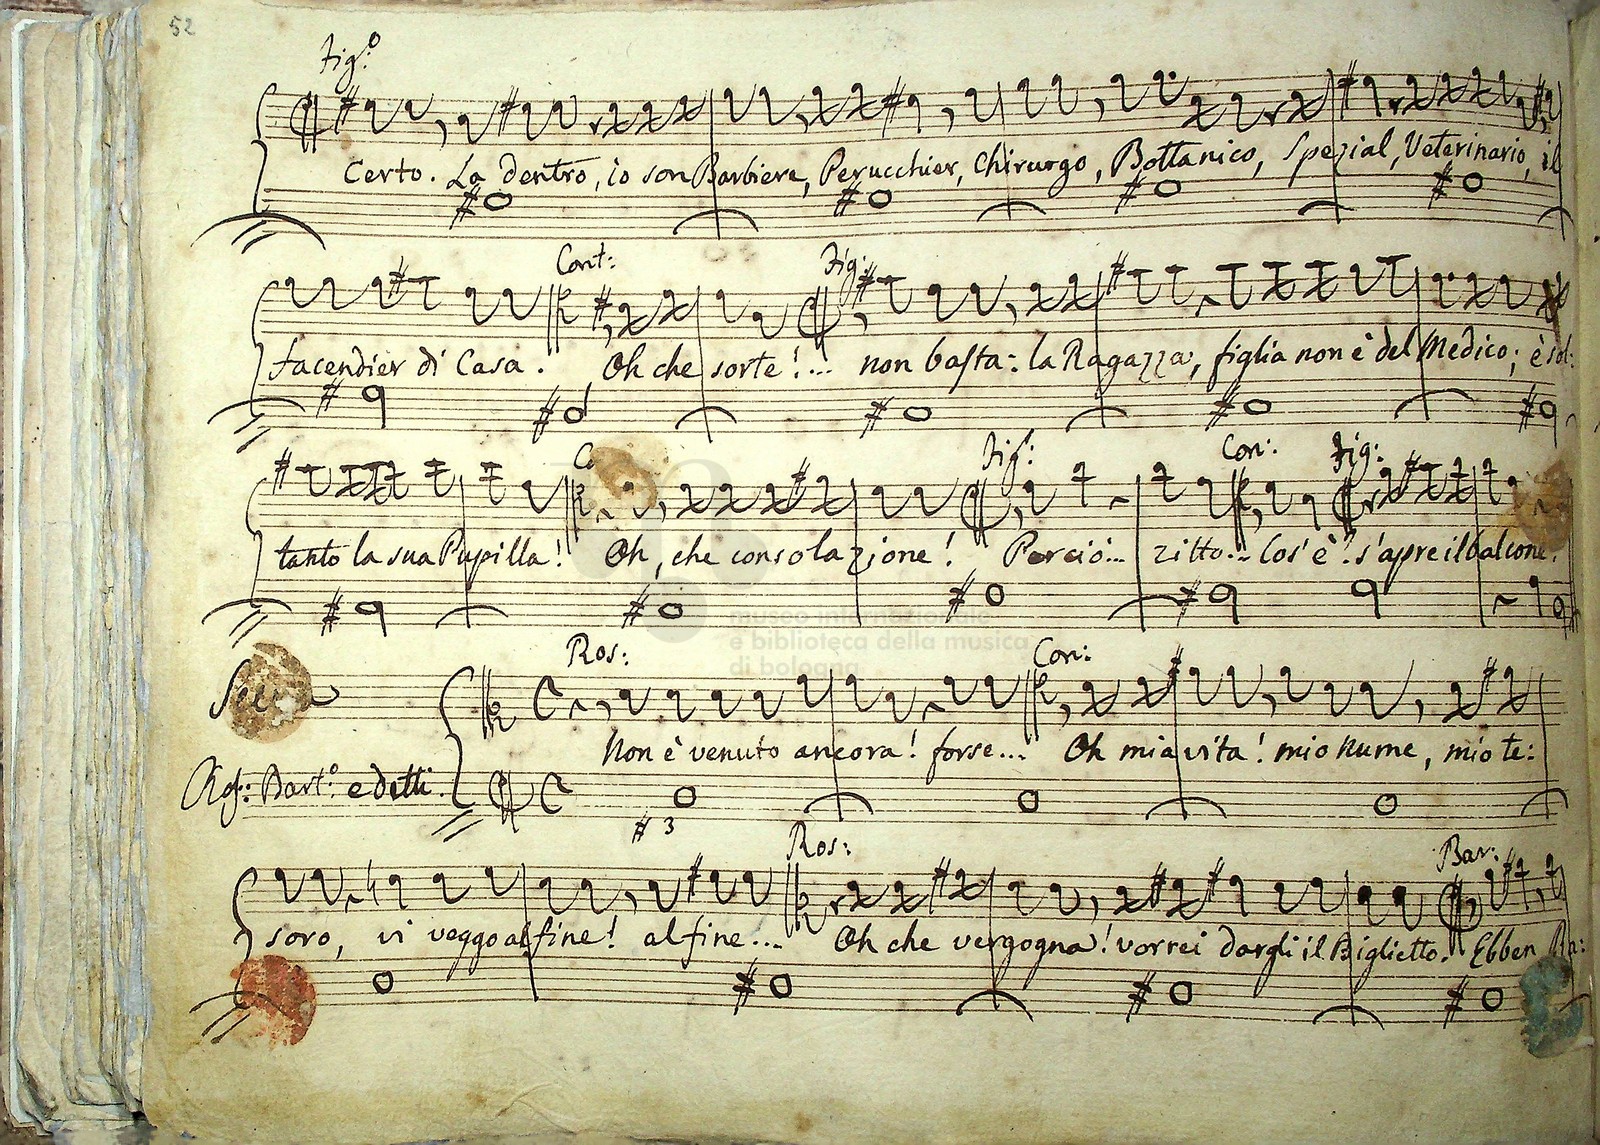 52
Fig.º
Certo. La dentro, io son Barbiere, Perucchier, Chirurgo, Bottanico, Spezial, Veterinario, il
Cont: Fig:
facendier di Casa. Oh che sorte!... non basta: la Ragazza, figlia non è del Medico; è sol:
Fig: Con: Fig:
tanto la sua Pupilla! Oh, che consolazione! Perciò... zitto... Cos'è? s'apre il balcone.
museo internazionale
e biblioteca della musica
di bologna
Ros: Con:
Non è venuto ancora! forse... Oh mia vita! mio Nume, mio te:
Bart.º e detti.
# 3
Ros: Bar:
soro, vi veggo alfine! alfine... Oh che vergogna! vorrei dargli il Biglietto. Ebben